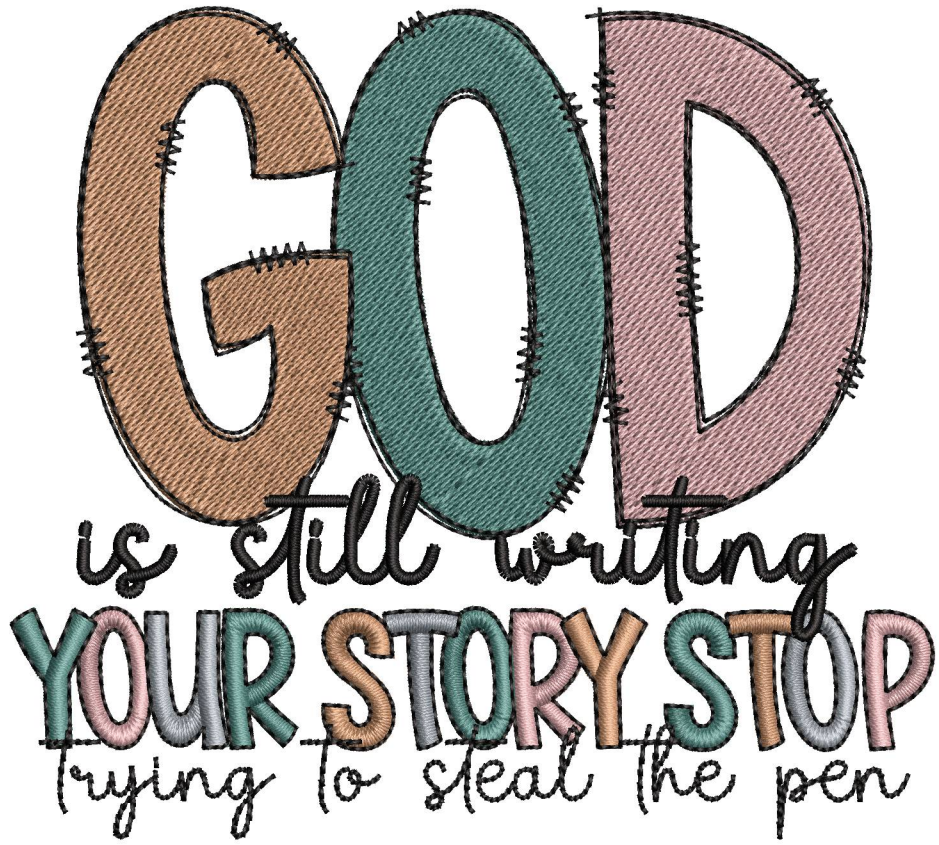 GOD
is still writing
YOUR STORY STOP
trying to steal the pen